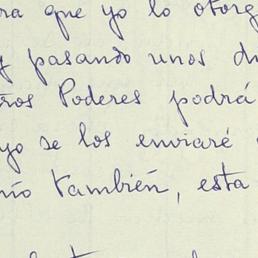 ra que yo lo otorg
y pasando unos di
ros Poderes podrá
yo se los enviaré
mío también, esta